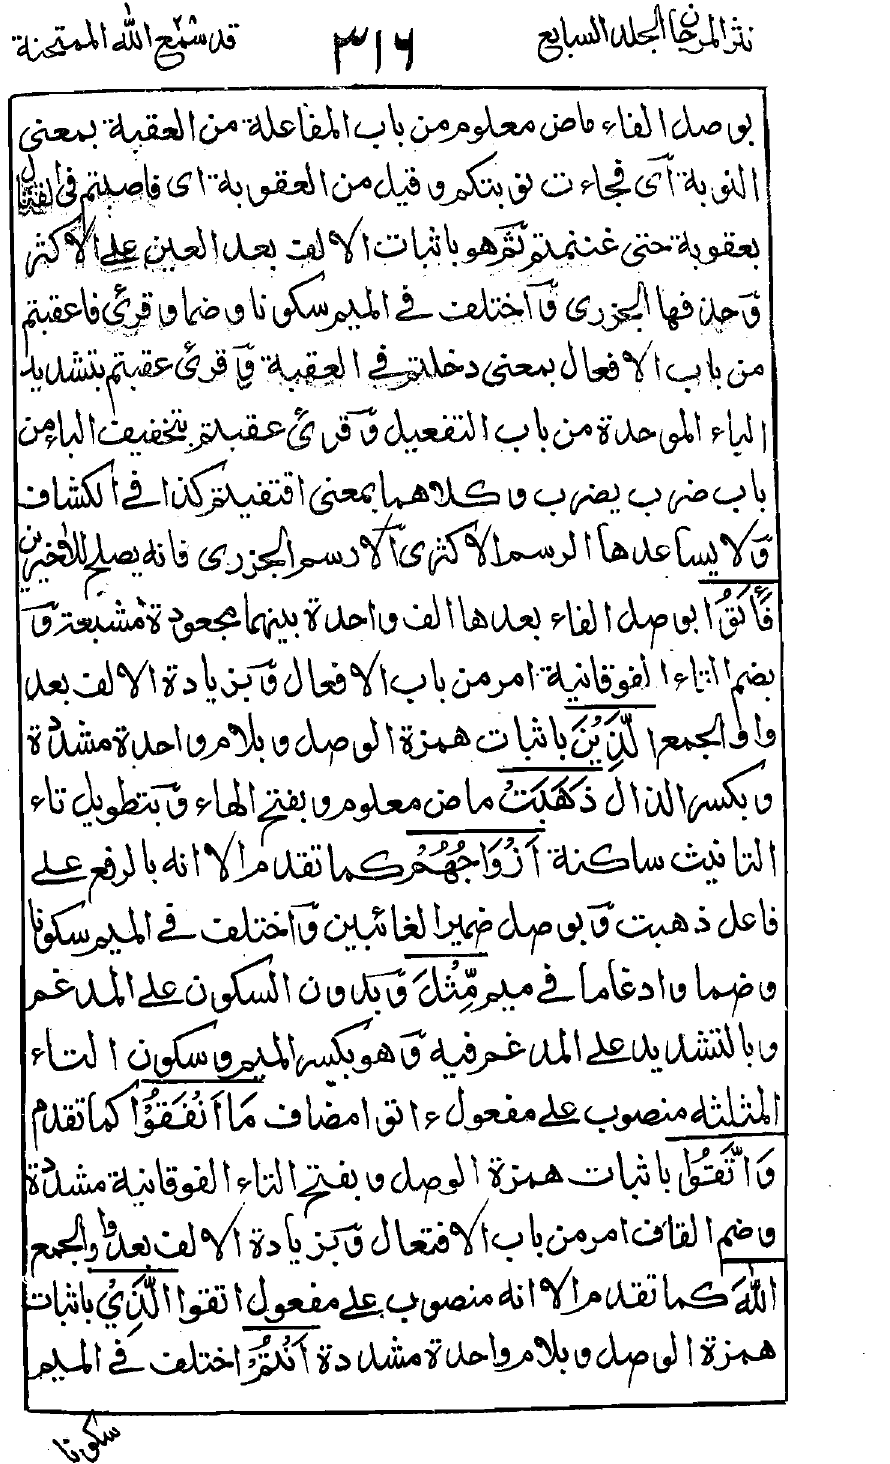 نثر المرجان المجلد السابع
٣١٦
قد سمع الله الممتحنة
بوصل الفاء ماض معلوم من باب المفاعلة من العقبة بمعنى
النوبة آى فجاءت نوبتكم و قيل من العقوبة اى فاصبتم فى القتال
بعقوبة حتى غنمتم ثم هو باثبات الالف بعد العين على الاكثر
وحذفها الجزرى و آختلف فى الميم سكونا و ضما و قرئ فاعقبتم
من باب الافعال بمعنى دخلتم فى العقبة و قرئ عقبتم بتشديد
الباء الموحدة من باب التفعيل و قرئ عقبتم بتخفيف الباء من
باب ضرب يضرب و كلاهما بمعنى اقتفيتم كذا فى الكشاف
و لا يساعدها الرسم الاكثرى آلا رسم الجزرى فانه يصلح للأخيرين
فَأٰتُوا بوصل الفاء بعدها الف واحدة بينهما مجعودة مشبعة و
بضم التاء الفوقانية امر من باب الافعال و بزيادة الالف بعد
واو الجمع الَّذِيْنَ باثبات همزة الوصل و بلام واحدة مشددة
و بكسر الذال ذَهَبَتْ ماض معلوم و بفتح الهاء و بتطويل تاء
التانيث ساكنة اَزْوَاجُهُمْ كما تقدم الا انه بالرفع على
فاعل ذهبت و بوصل ضمير الغائبين و آختلف فى الميم سكونا
و ضما و ادغاما فى ميم مِّثْلَ و بدون السكون على المدغم
و بالتشديد على المدغم فيه و هو بكسر الميم و سكون التاء
المثلثه منصوب على مفعول ءاتوا مضاف مَا اَنْفَقُوْا كما تقدم
وَاتَّقُوا باثبات همزة الوصل و بفتح التاء الفوقانية مشددة
و ضم القاف امر من باب الافتعال و بزيادة الالف بعد واو الجمع
اللهَ كما تقدم الا انه منصوب على مفعول اتقوا الَّذِيْ باثبات
همزة الوصل و بلام واحدة مشددة اَنْتُمْ اختلف فى الميم
سكونا